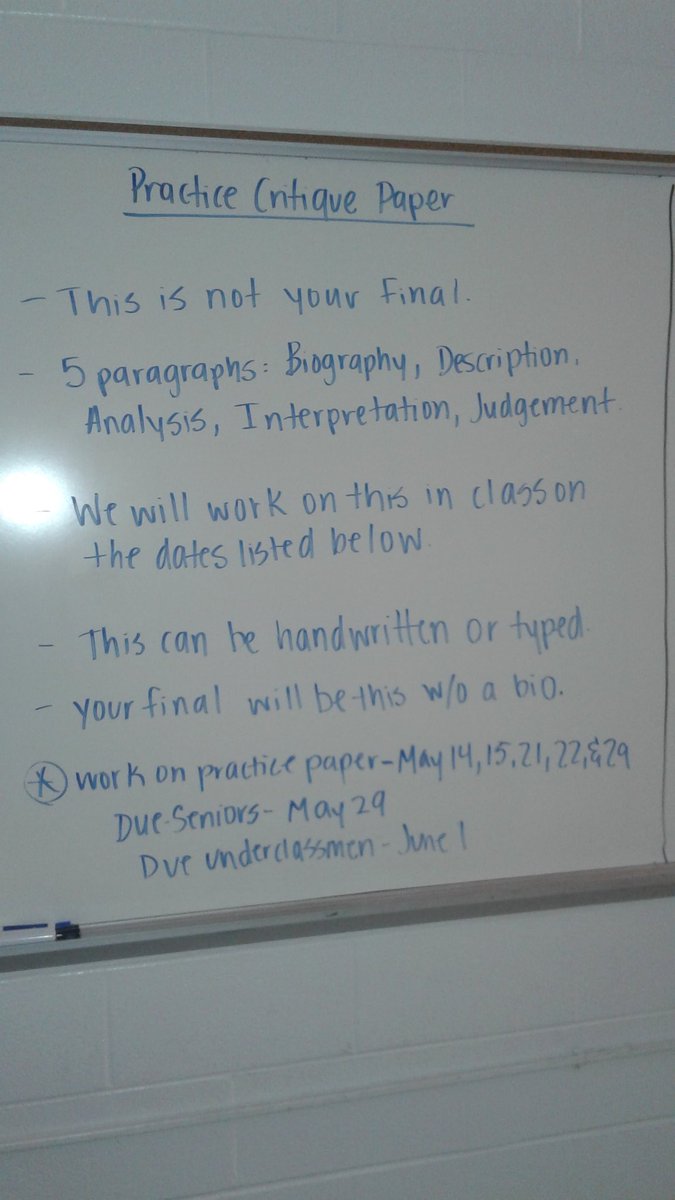 Practice Critique Paper
- This is not your final.
- 5 paragraphs: Biography, Description,
Analysis, Interpretation, Judgement.
- We will work on this in class on
the dates listed below.
- This can be handwritten or typed.
- your final will be this w/o a bio.
* work on practice paper - May 14, 15, 21, 22, & 29
Due-Seniors - May 29
Due underclassmen - June 1